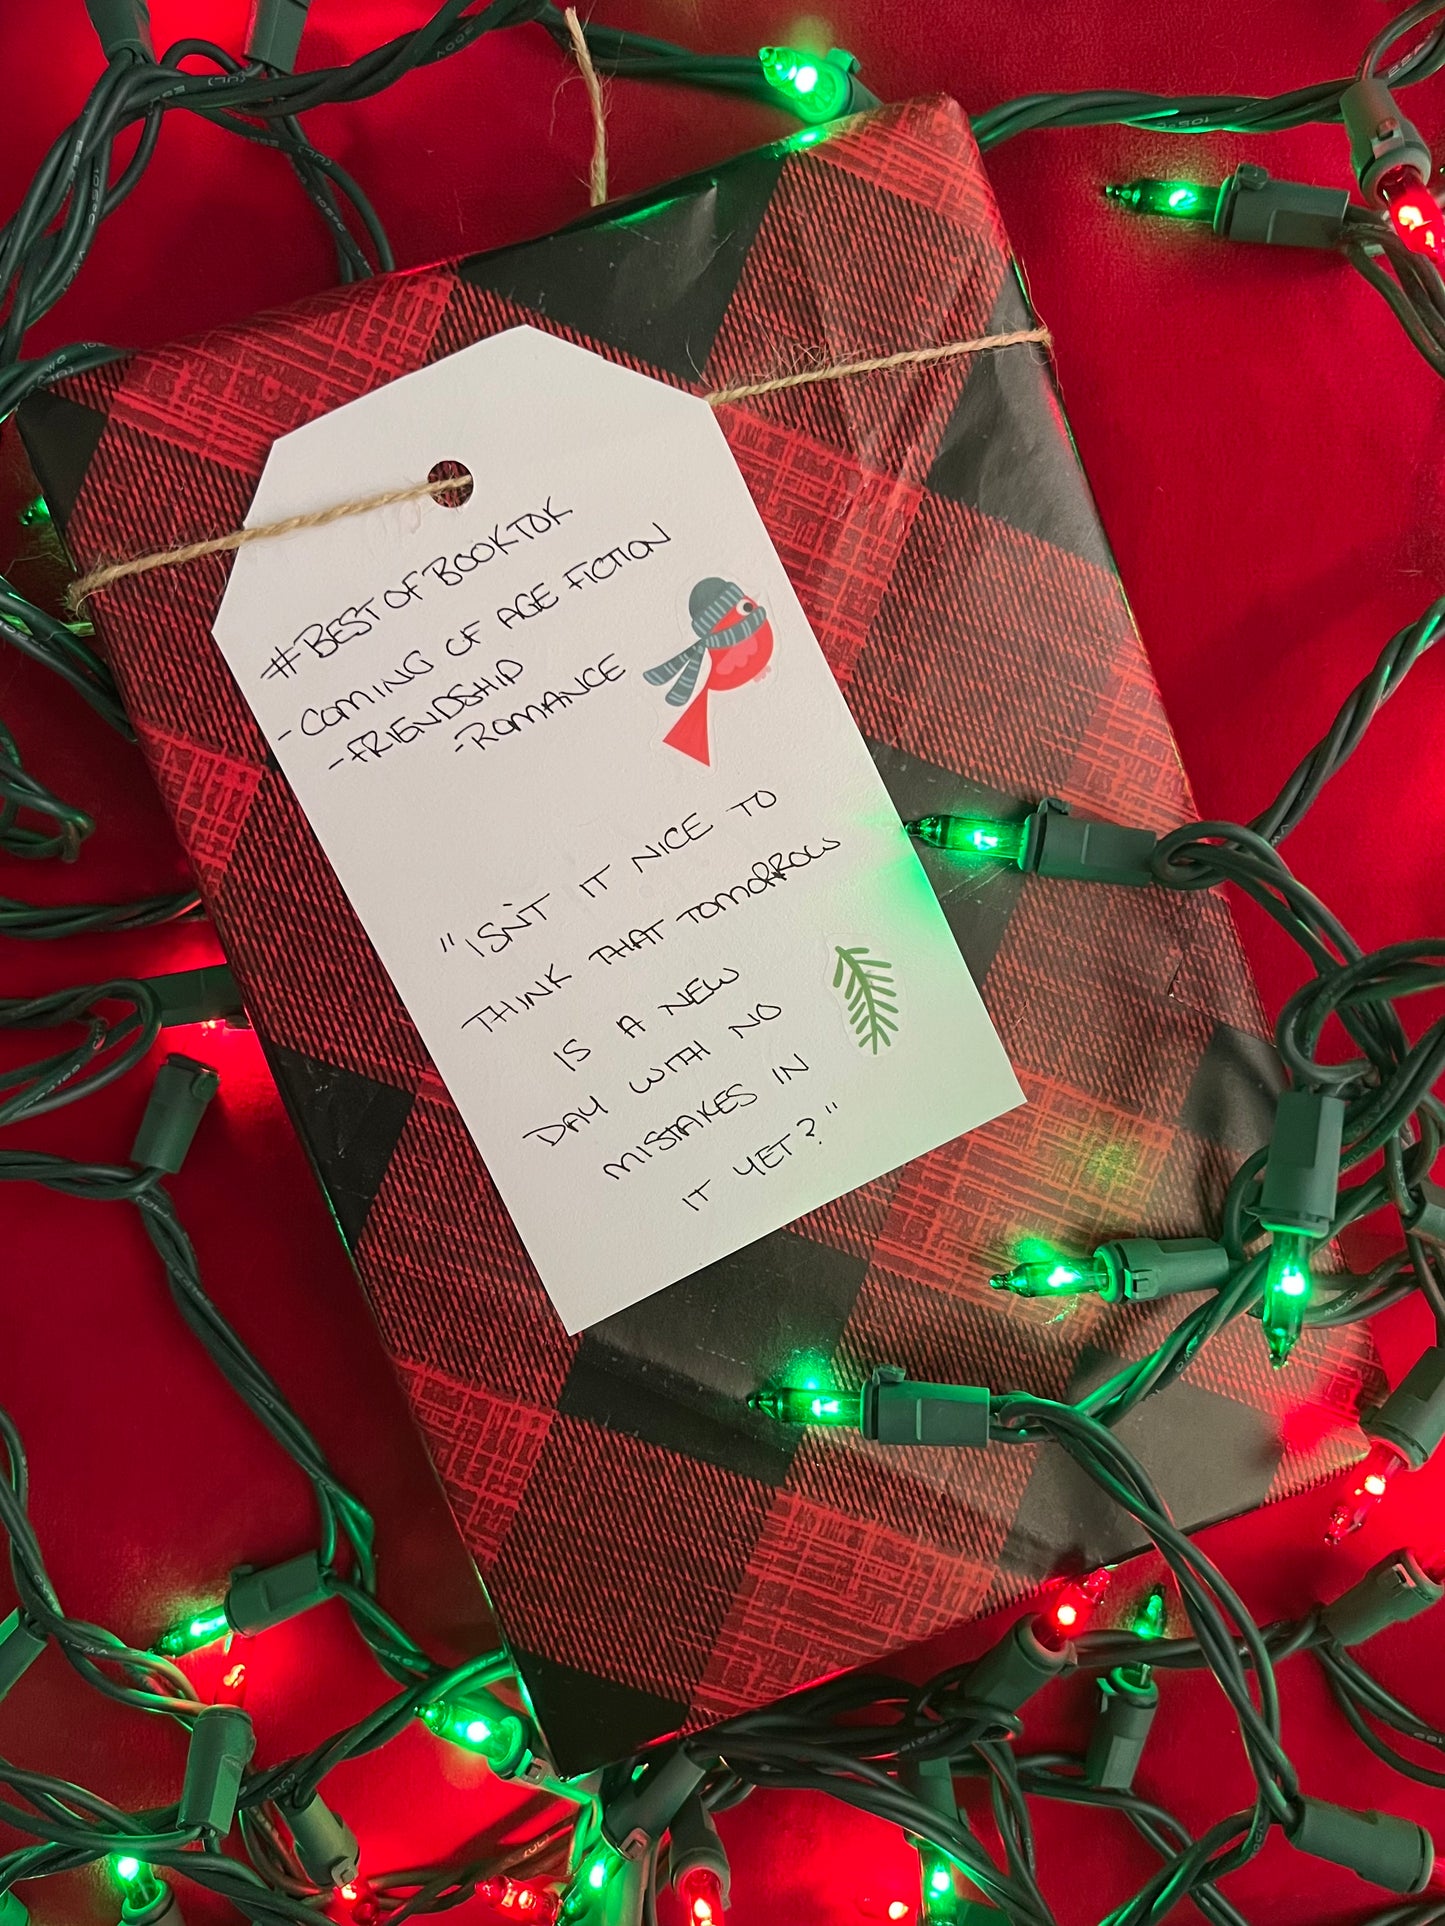 #BESTOFBOOKTOK
-COMING OF AGE FICTION
-FRIENDSHIP
-ROMANCE
"ISN'T IT NICE TO
THINK THAT TOMORROW
IS A NEW
DAY WITH NO
MISTAKES IN
IT YET?"